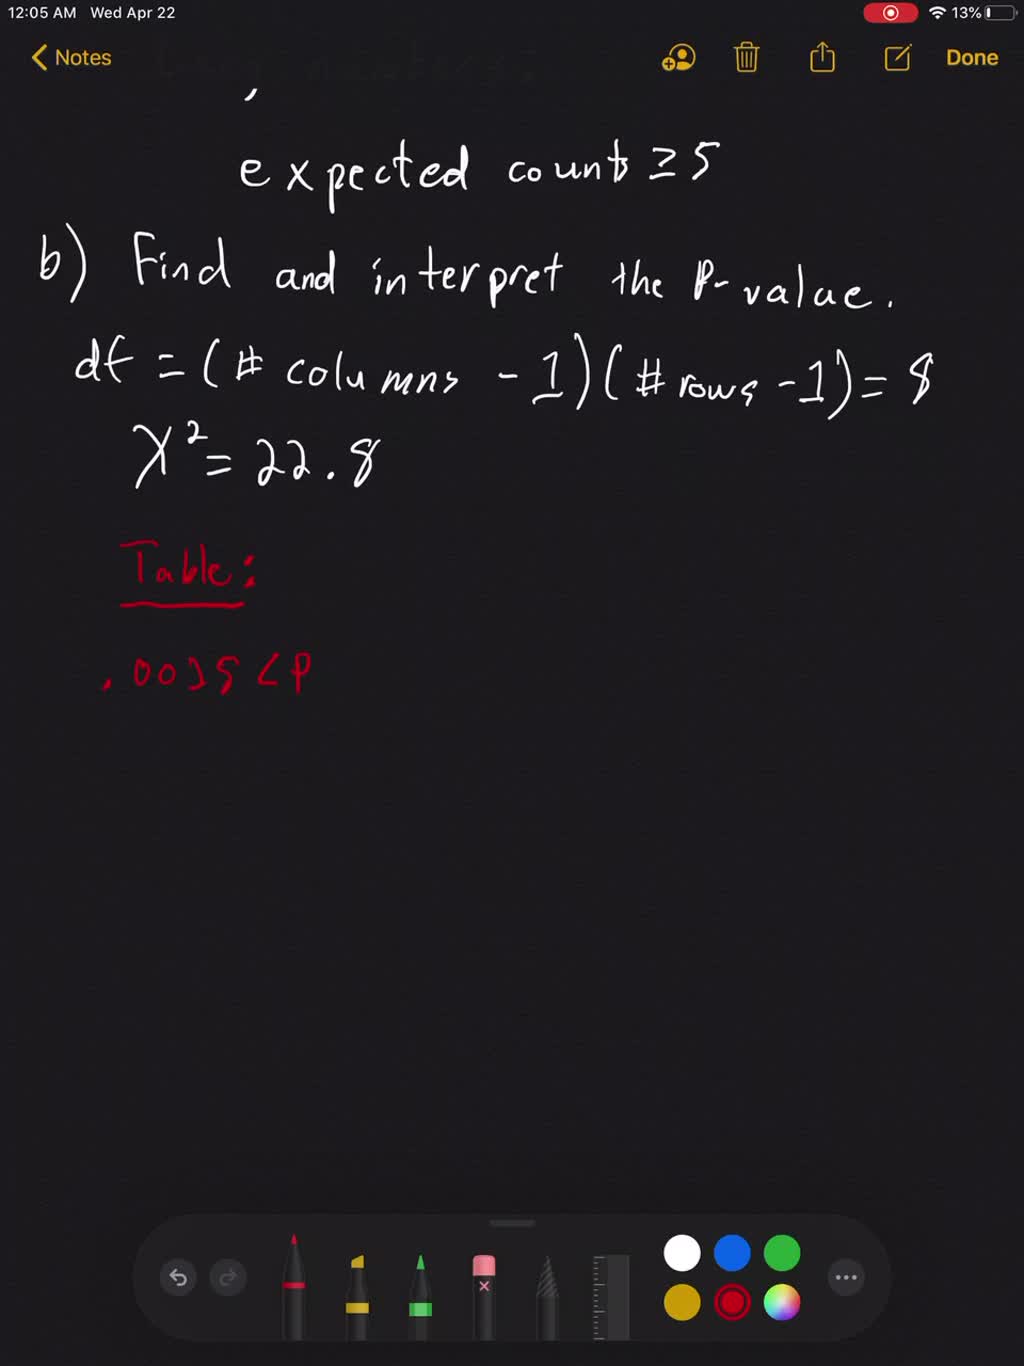 12:05 AM Wed Apr 22
13%
Notes
Done
expected counts ≥ 5
b) Find and interpret the P-value.
df = (# columns - 1)(# rows - 1) = 8
χ² = 22.8
Table:
.0025 < P